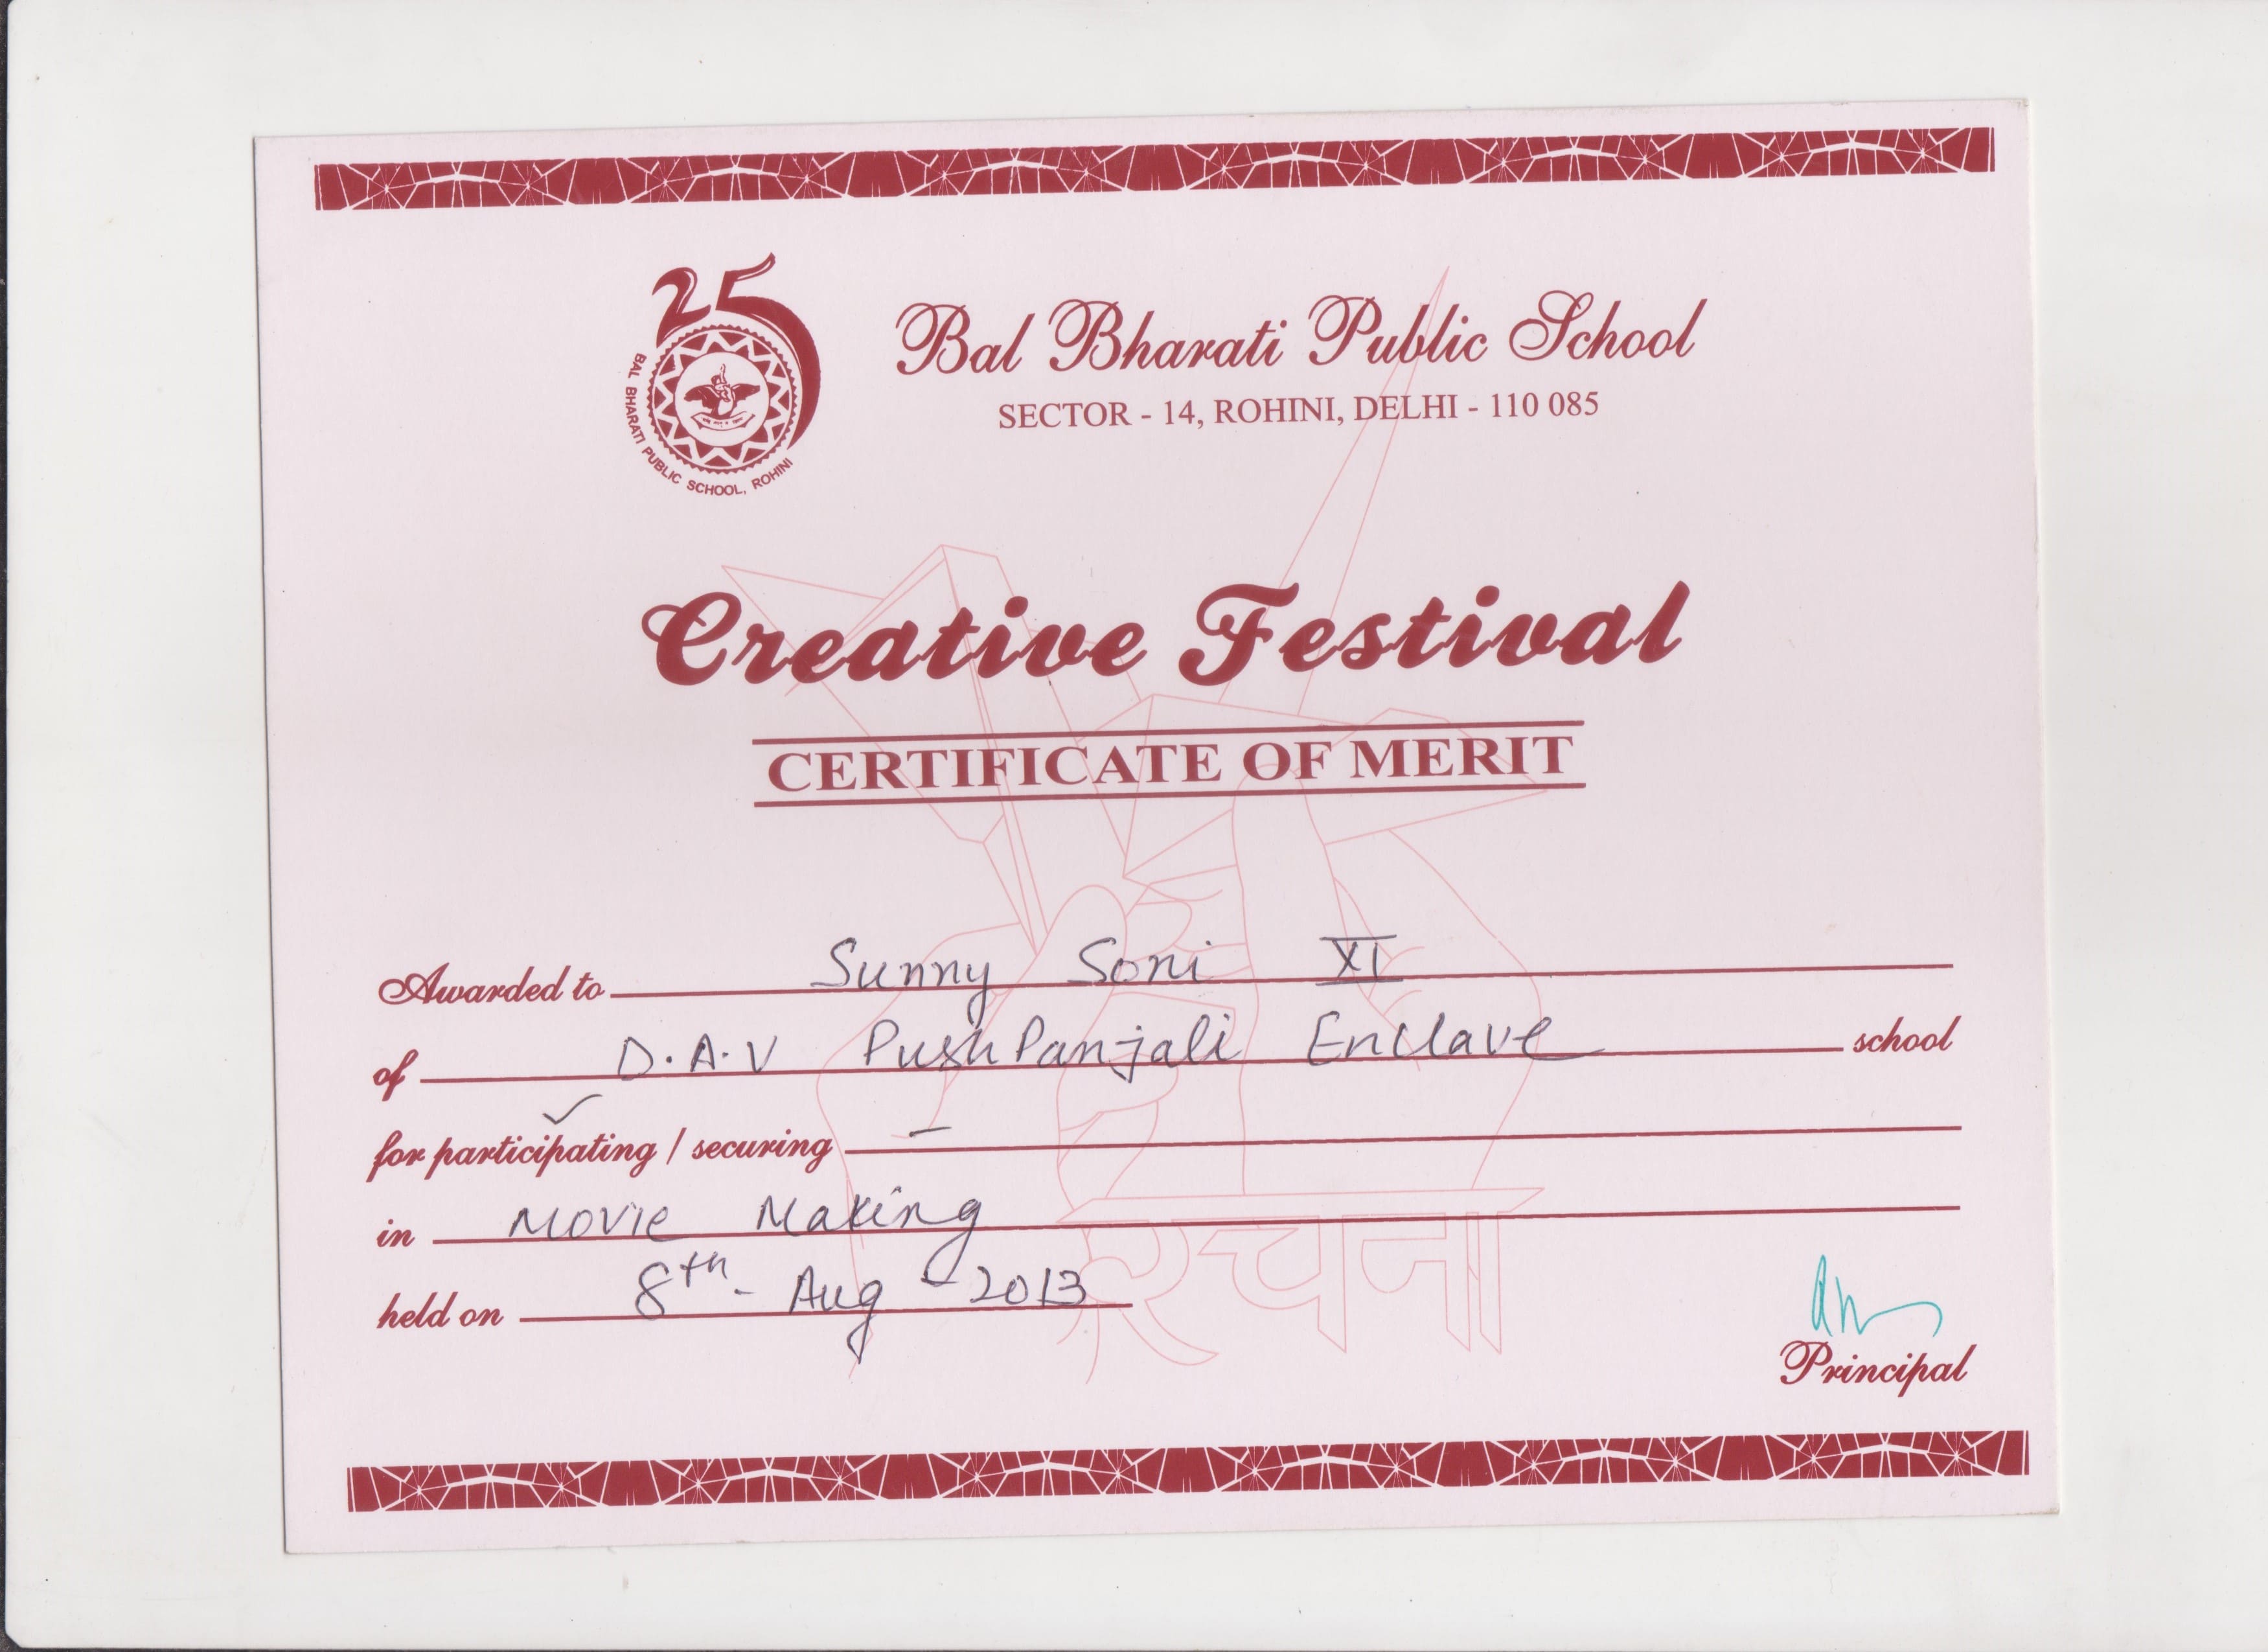 25
BAL BHARATI PUBLIC SCHOOL, ROHINI
Bal Bharati Public School
SECTOR - 14, ROHINI, DELHI - 110 085
Creative Festival
CERTIFICATE OF MERIT
Awarded to Sunny Soni XI
of D.A.V PushPanjali Enclave school
for participating / securing –
in Movie Making
held on 8th - Aug - 2013
रचना
Principal